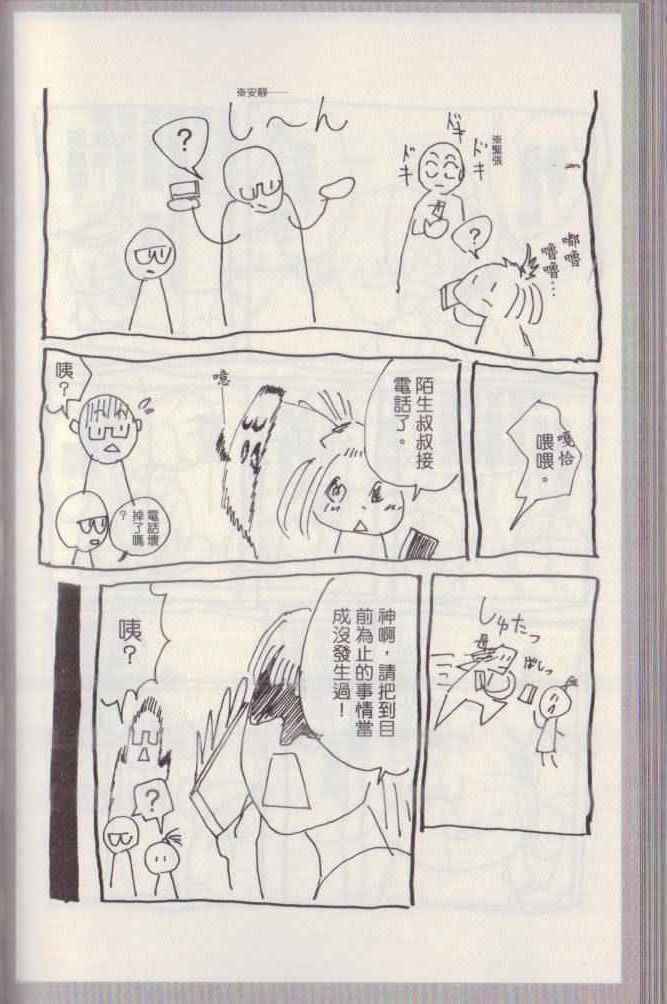 ※緊張
ドキ
ドキ
ドキ
嘟嚕
嚕嚕…
?
※安靜──
し〜ん
?
嘎恰
喂喂。
陌生叔叔接
電話了。
噫
咦?
電話壞
掉了嗎
?
しゅたっ
ぱしっ
神啊,請把到目
前為止的事情當
成沒發生過!
咦?
?